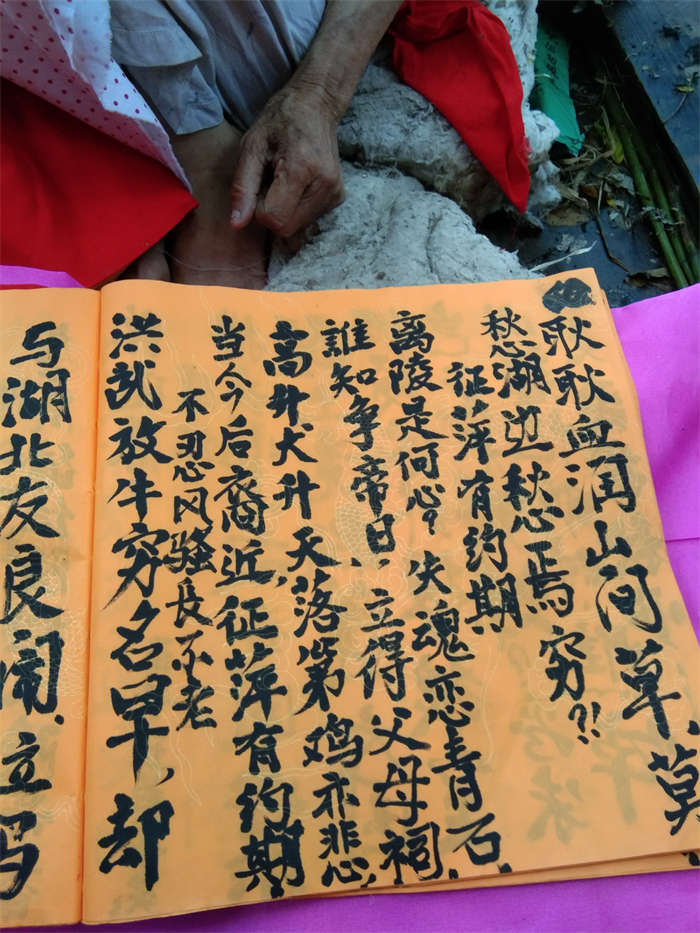 耿耿血润山间草莫
愁湖边愁焉穷?!
征萍有约期
离陵是何心?失魂恋青石,
誰知争帝日,立得父母祠,
高升犬升天,落第鸡亦悲,
当今后裔近征萍有约期
不忍风骚長不老
洪乱放牛穷名旱,却
与湖北友良闹,立